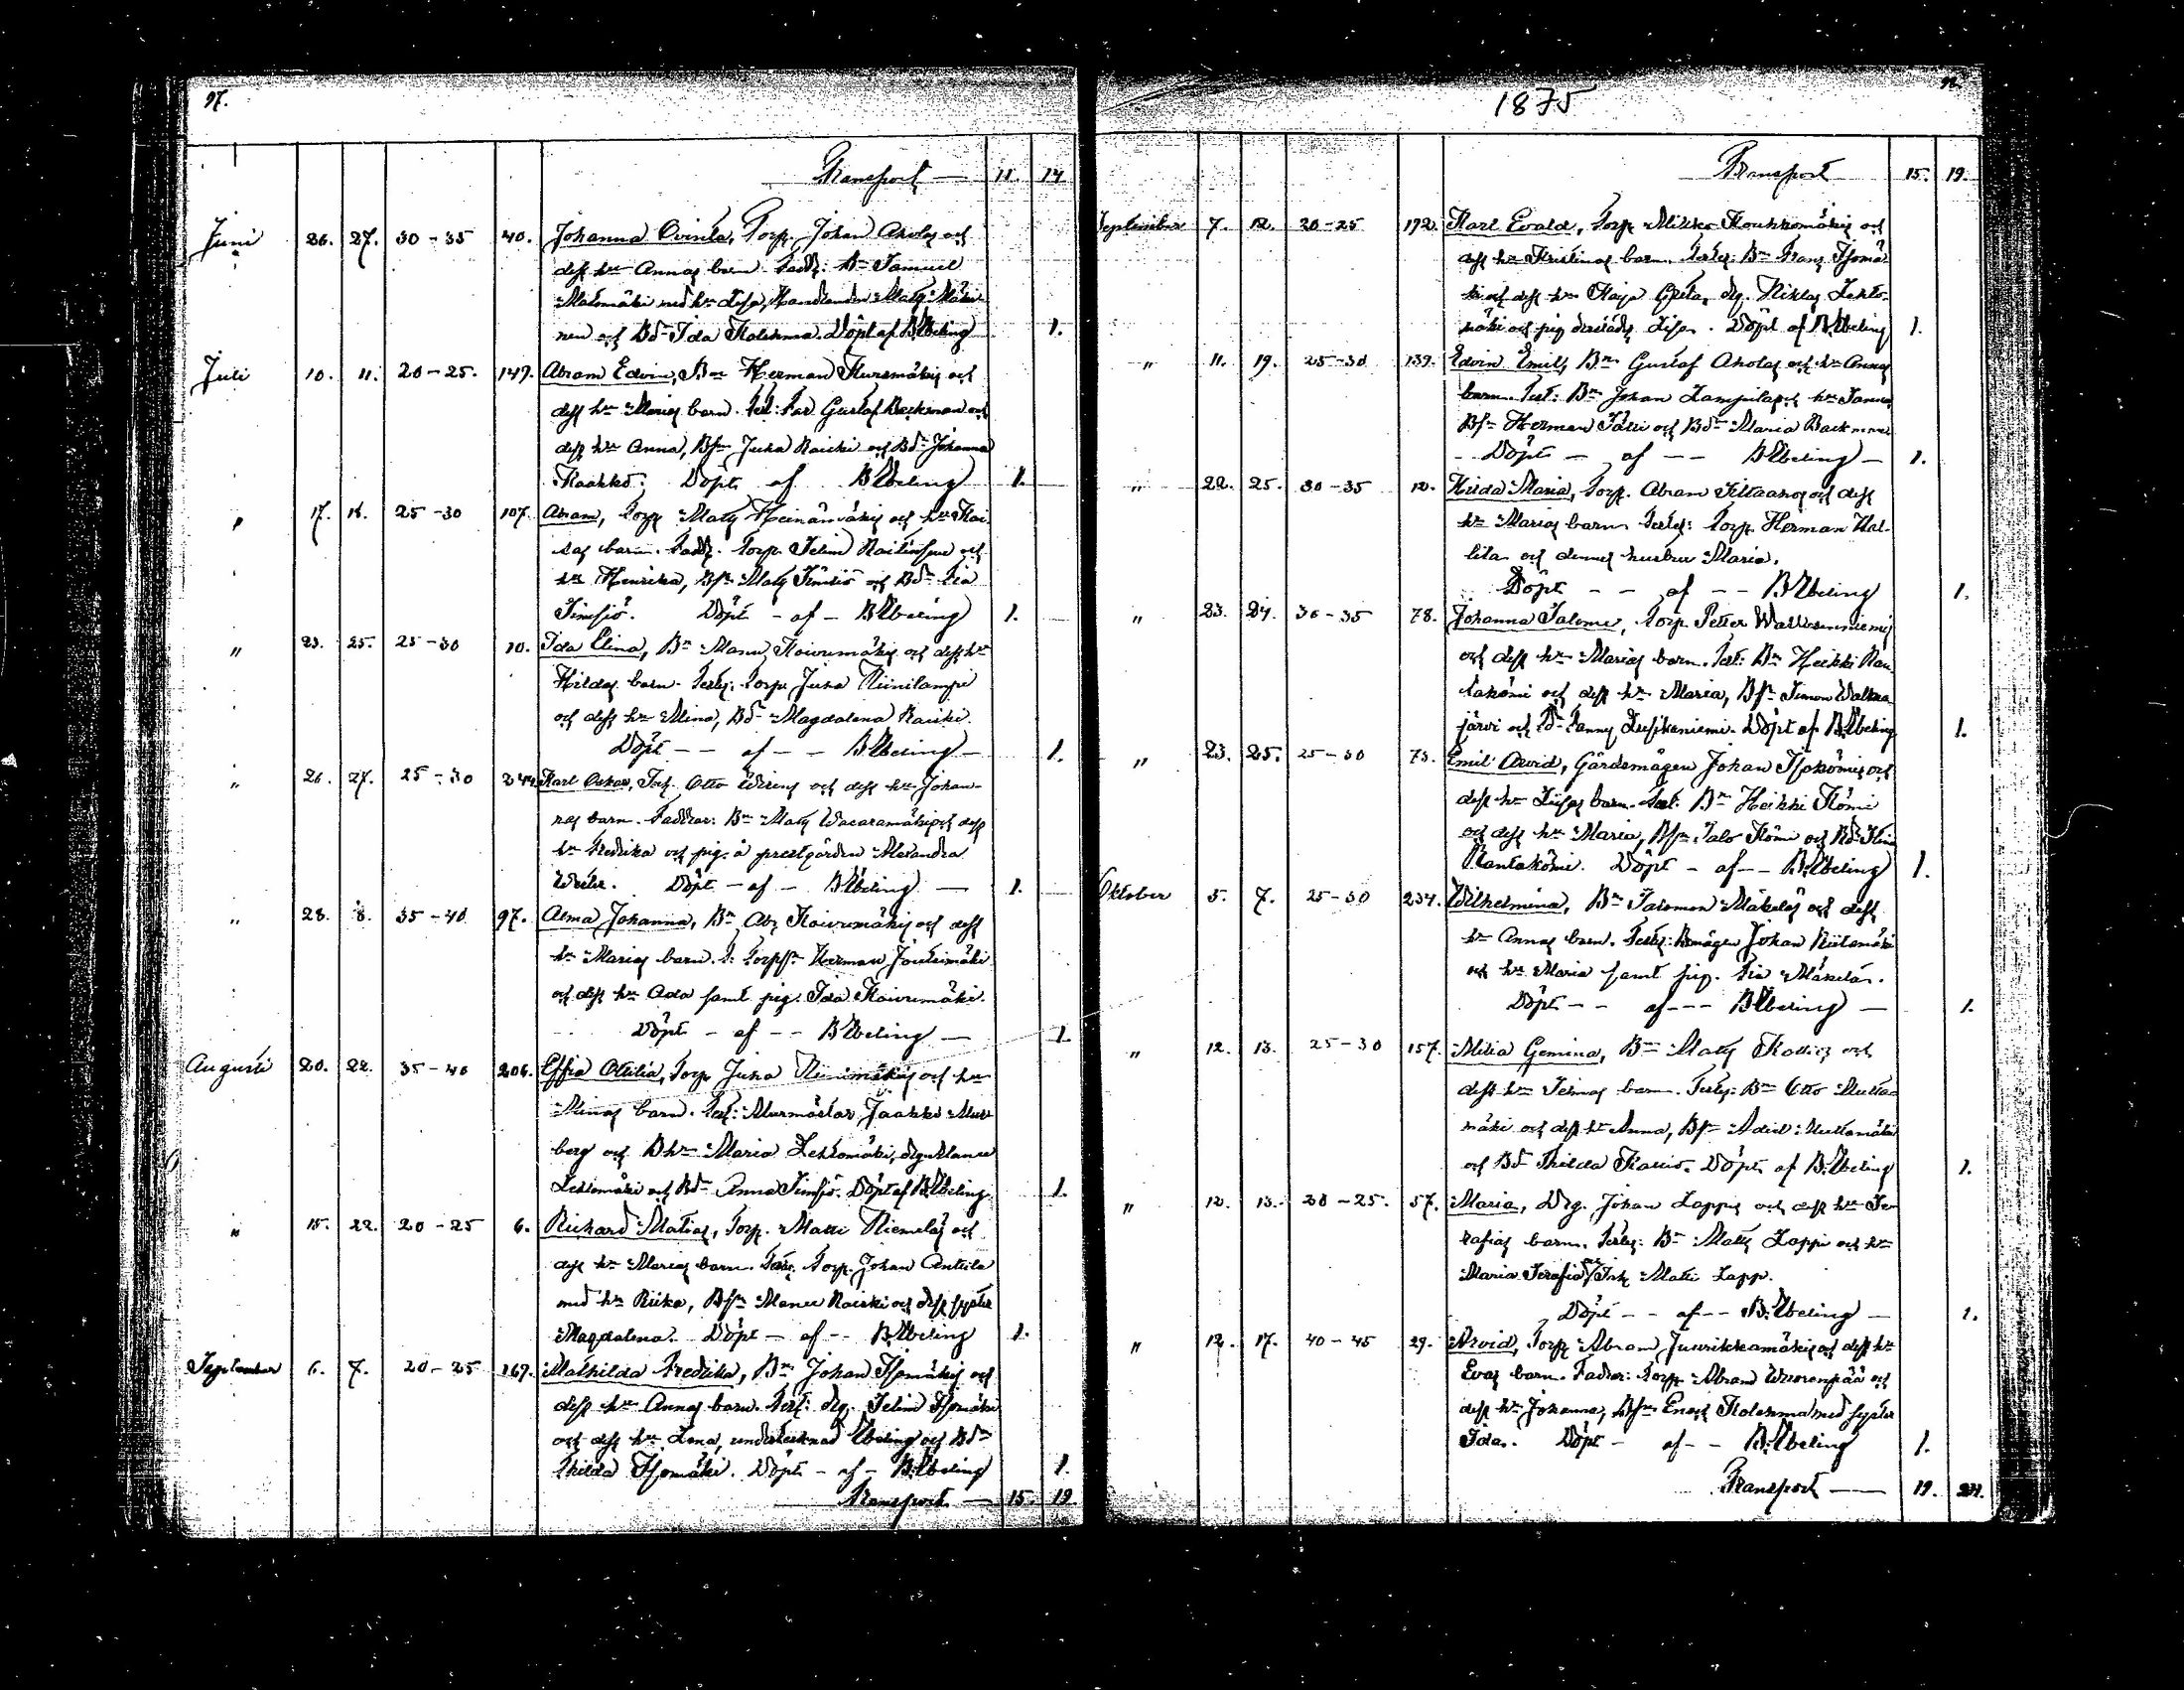 97.
Transport — 11. 14
Juni 26. 27. 30-35 40. Johanna Ovinda, Torp. Johan Aholas och
dess hu Annas barn. Fadd: Bn Samuel
Malomäki med hu Lisa, Handlanden Matts Mäki-
nen och Bd Ida Kolehma. Döpt af B. Ebeling 1.
Juli 10. 11. 20-25. 147. Abram Edvin, Bn Herman Kursmäkis och
dess hu Marias barn. Test: Gustaf Backman och
dess hu Anna, Bsn Juha Raiski och Bd Johanna
Kaakko. Döpt af B Ebeling 1.
" 17. 18. 25-30 107. Abram, Torp Matts Heinämäkis och hu Kai
sas barn. Fadd. Torp. Selim och
hu Henrika, Bsn Matts Simsiö och Bd Fia
Simsiö. Döpt - af - B Ebeling 1.
" 23. 25. 25-30 10. Ida Elina, Bn Manu Koivumäkis och dess hu
Hildas barn. Testes: Torp. Juha Niinilampi
och dess hu Mina, Bd Magdalena Raiski.
Döpt - - af - - B Ebeling - 1.
" 26. 27. 25-30 244. Karl Oskar, Inh. Otto och dess hu Johan-
nas barn. Faddrar: Bn Matts Wacaramäki och dess
hu Fredrika och pig. å prestgården Alexandra
Döpt - af - B Ebeling — 1.
" 28. 8. 35-40 97. Alma Johanna, Bn Abr Koivumäkis och dess
hu Marias barn. T: Torpsn Herman Joutsimäki
och dess hu Ada samt pig. Ida Koivumäki.
Döpt - af - - B Ebeling — 1.
Augusti 20. 22. 35-40 206. Effia Otilia, Torp Juha Niinimäkis och hu
Minas barn. Test: Murmästar Jaakko Mur
berg och Bhu Maria Lehtomäki, drg Manu
Lehtomäki och Bd Anna Simsiö. Döpt af B. Ebeling 1.
" 15. 22. 20-25 6. Rickard Matias, Torp. Matti Niemeläs och
dess hu Marias barn. Test: Torp. Johan Anttila
med hu Riika, Bsn Manu Raiski och dess syster
Magdalena. Döpt - af - - B Ebeling 1.
September 6. 7. 20-25 167. Mathilda Fredrika, Bn Johan Isomäkis och
dess hu Annas barn. Test: drg. Selim Isomäki
och dess hu Lena, undertecknad Ebeling och Bd
Thilda Isomäki. Döpt - af - B. Ebeling 1.
Transport — 15. 19.
1875
Transport 15. 19.
September 7. 12. 20-25 192. Karl Evald, Torp Mikko Koukkomäkis och
dess hu Kristinas barn. Testes: Bn Frans Isomä
ki och dess hu Kaija Greta, drg. Niklas Lehto-
mäki och pig Lisa. Döpt af B. Ebeling 1.
" 11. 19. 25-30 139. Edvin Emil, Bn Gustaf Aholas och hu Annas
barn. Test: Bn Johan Lampila och hu Sanna,
Bsn Herman Tätti och Bd Maria Backman
Döpt - af - - B Ebeling - 1.
" 22. 25. 30-35 12. Hilda Maria, Torp. Abram Siltaahos och dess
hu Marias barn Testes: Torp. Herman Kal-
lila och dennes husbru Maria.
Döpt - - af - - B Ebeling 1.
" 23. 24. 30-35 78. Johanna Salome, Torp. Petter Walkosenniemis
och dess hu Marias barn. Test: Bn Heikki Ran
takömi och dess hu Maria, Bsn Simon Walkea
järvi och Bd Fanny Lupikoniemi. Döpt af B. Ebeling 1.
" 23. 25. 25-30 73. Emil Arvid, Gårdsmågen Johan Isokömis och
dess hu Liisas barn. Test: Bn Heikki Kömi
och dess hu Maria, Bsn Salo Kömi och Bd Stina
Rantakömi. Döpt - af - - B. Ebeling 1.
Oktober 5. 7. 25-30 234. Wilhelmina, Bn Salomon Mäkeläs och dess
hu Annas barn. Testes: Bmågen Johan Riitamäki
och hu Maria samt pig. Fia Mäkelä.
Döpt - - af - - - B Ebeling — 1.
" 12. 13. 25-30 157. Milia Gemina, Bn Matts Kattios och
dess hu Selmas barn. Testes: Bn Otto Mutka
mäki och dess hu Anna, Bsn Adiel Mutkamäki
och Bd Thilda Kattio. Döpt af B. Ebeling 1.
" 12. 13. 20-25. 57. Maria, Drg. Johan Lappis och dess hu Se
rafias barn. Testes: Bn Matts Lappi och hu
Maria Serafia, Inh Matti Lapp.
Döpt - - af - - B. Ebeling — 1.
" 12. 17. 40-45 29. Arvid, Torp Abram Juurikkamäkis och dess hu
Evas barn. Faddrar: Torp Abram Wuorenpää och
dess hu Johanna, Bsn Enok Kolehma med syster
Ida. Döpt - af - - B. Ebeling 1.
Transport — 19. 24.